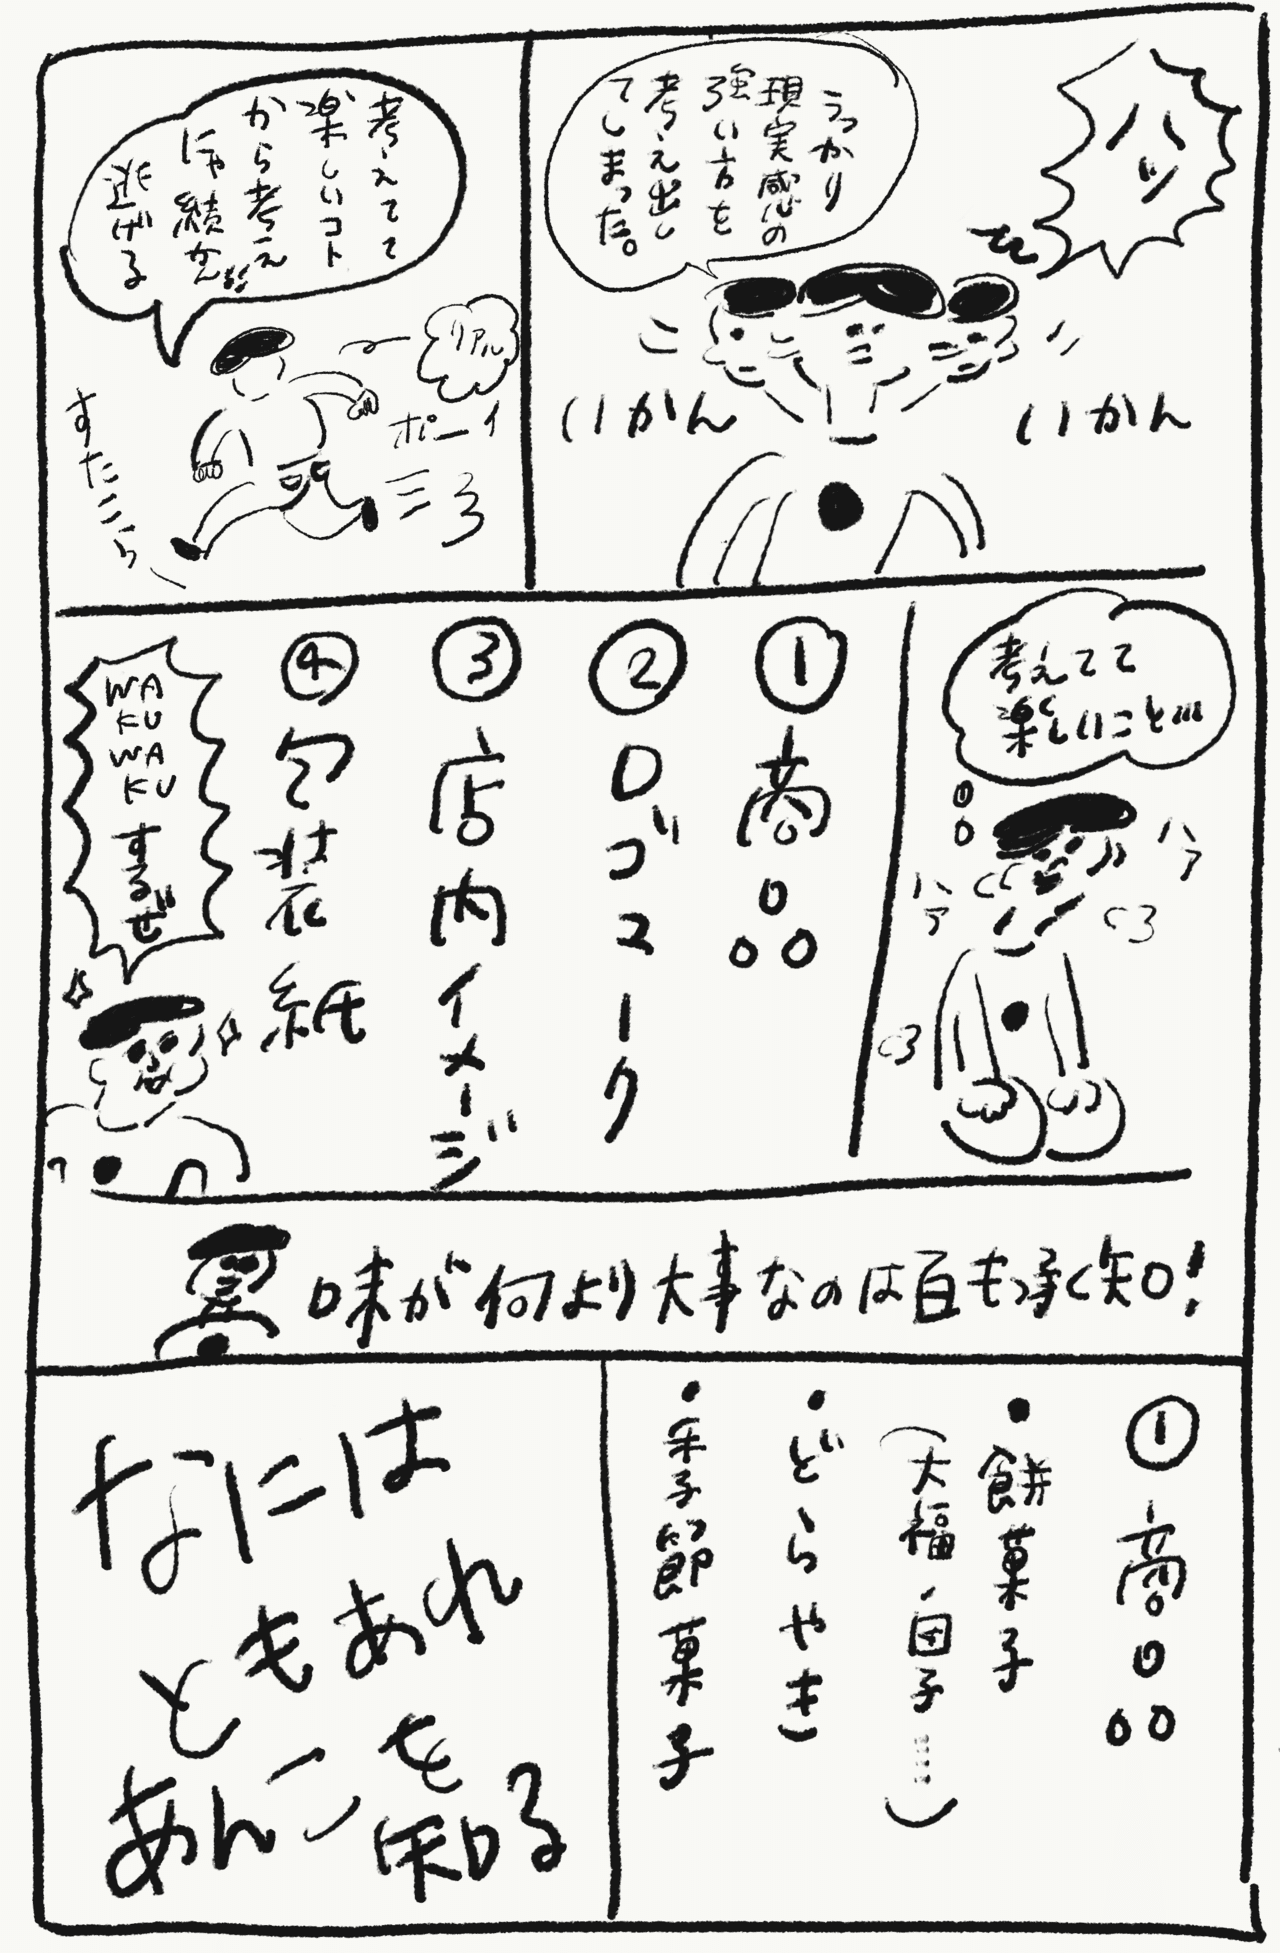 ハッ
うっかり
現実感の
強い方を
考え出し
てしまった。
いかん
いかん
考えてて
楽しいコト
から考え
にゃ続かん
逃げる
リアル
ポーイ
すたこら
考えてて
楽しいこと…
ハア
ハア
①商品
②ロゴマーク
③店内イメージ
④包装紙
WA
KU
WA
KU
するぜ
味が何より大事なのは百も承知!
①商品
・餅菓子
(大福、団子……)
・どらやき
・季節菓子
なには
ともあれ
あんこを
知る